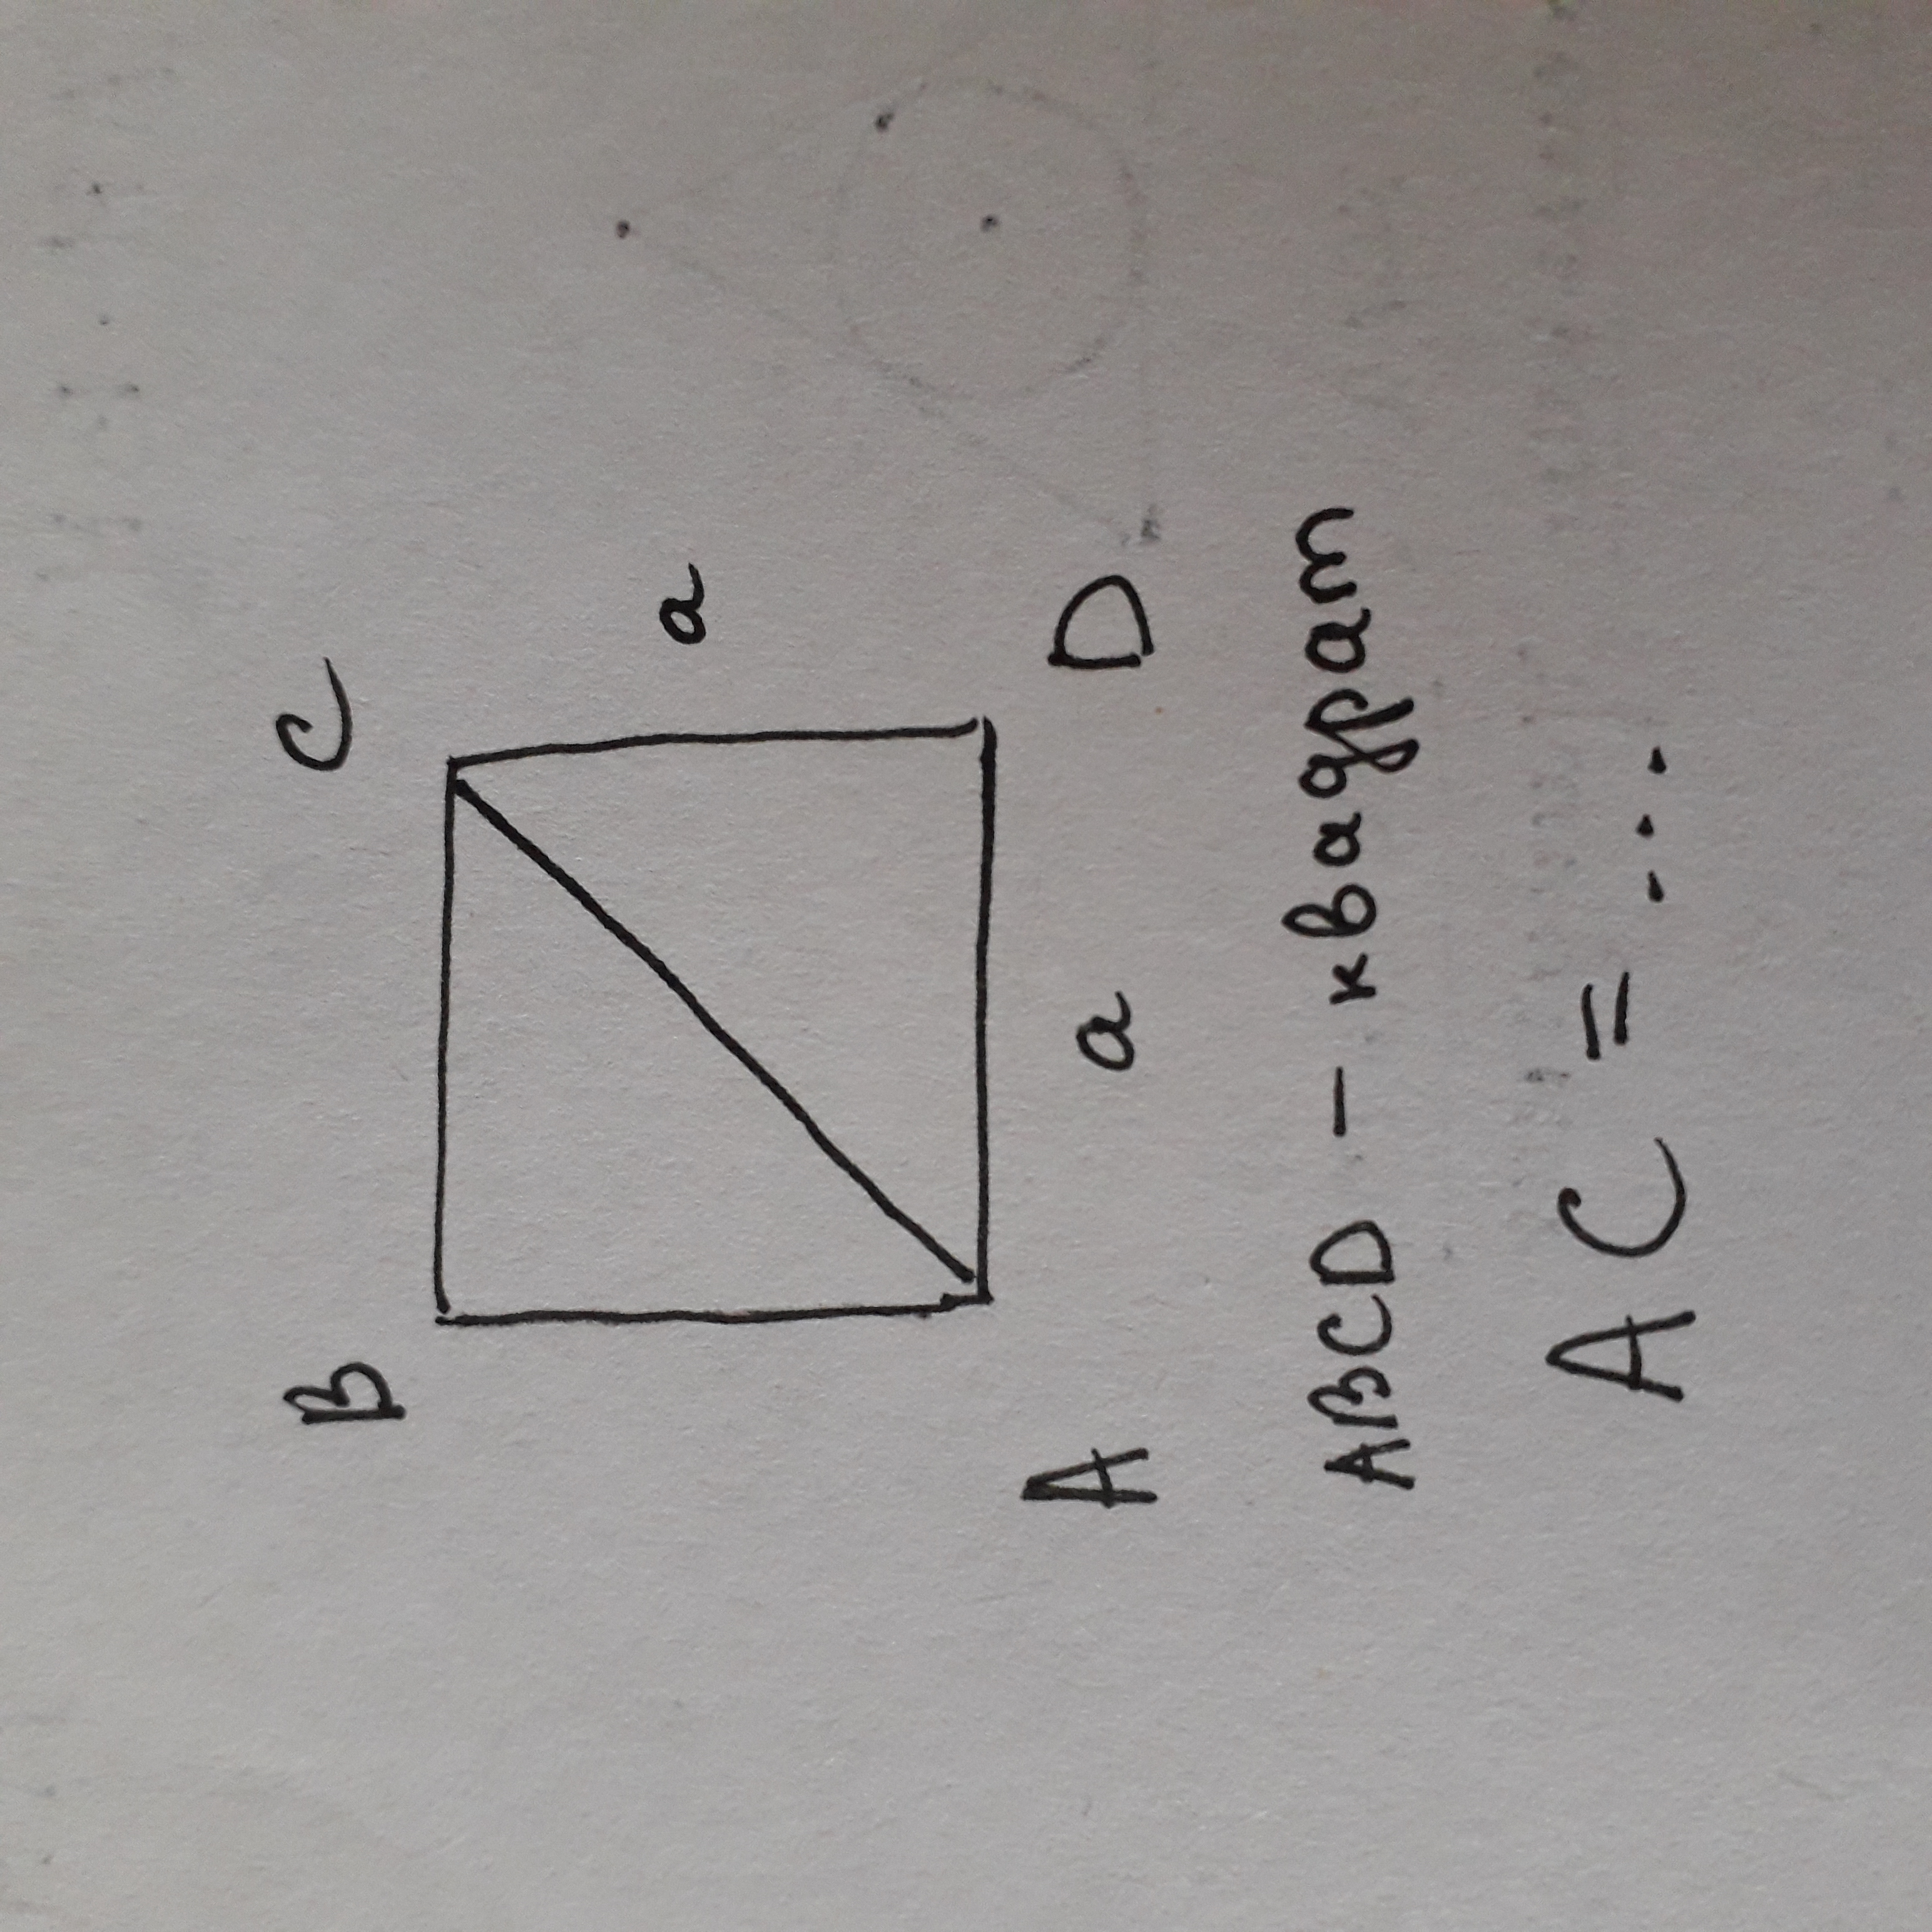 B C
a
A a D
ABCD - квадрат
AC = ...